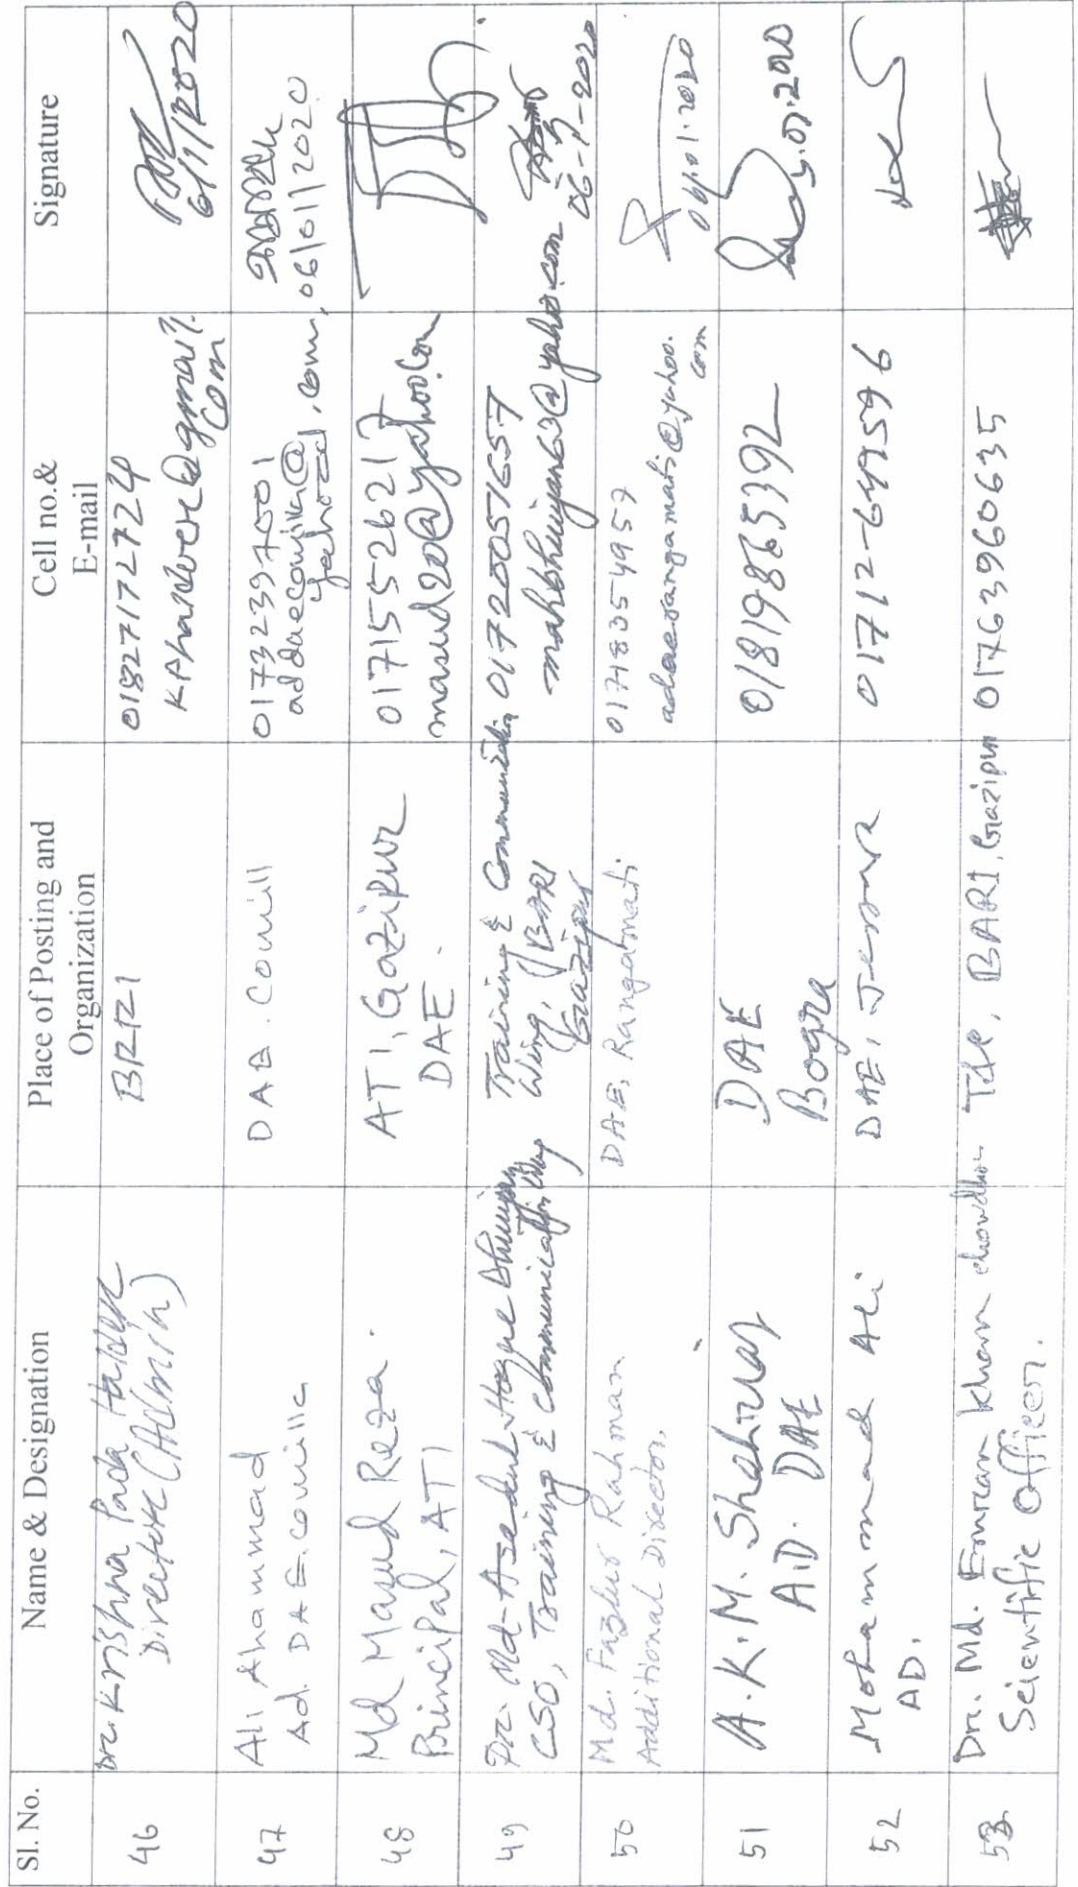 Sl. No.
Name & Designation
Place of Posting and
Organization
Cell no.&
E-mail
Signature
46
Dr. Krishna Pada Halder
Director (Admin)
BRRI
01827172724
KPhalder@gmail.
com
6/1/2020
47
Ali Ahammad
Ad. DAE. comilla
DAE. Comill
01732397001
addaecomilla@
yahoo.com,
06/01/2020
48
Md Masud Reza.
Principal, ATI
ATI, Gazipur
DAE.
01715526217
masud20@yahoo.com
49
Dr. Md. Asadul Hoque Bhuiyan
CSO, Training & Communication Wing
Training & Communication
Wing, BARI
Gazipur
01720051657
mahbhuiyan63@yahoo.com
06-1-2020
50
Md. Fazlur Rahman
Additional Director.
DAE, Rangamati
adaerangamati@yahoo.
com
06.01.2020
51
A.K.M. Shahriar
A.D. DAE
DAE
Bogra
01819865392
52
Mohammad Ali
AD.
DAE, Jessore
01712-649596
53
Dr. Md. Emran khan chowdhu
Scientific Officer.
BARI, Gazipur
01763960635